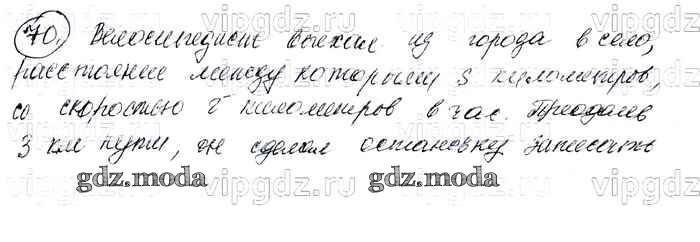 vipgdz.ru vipgdz.ru vipgdz.ru
70. Велосипедист выехал из города в село,
расстояние между которыми S километров,
со скоростью v километров в час. Преодолев
3 км пути, он сделал остановку записать
gdz.moda gdz.moda
vipgdz.ru vipgdz.ru vipgdz.ru